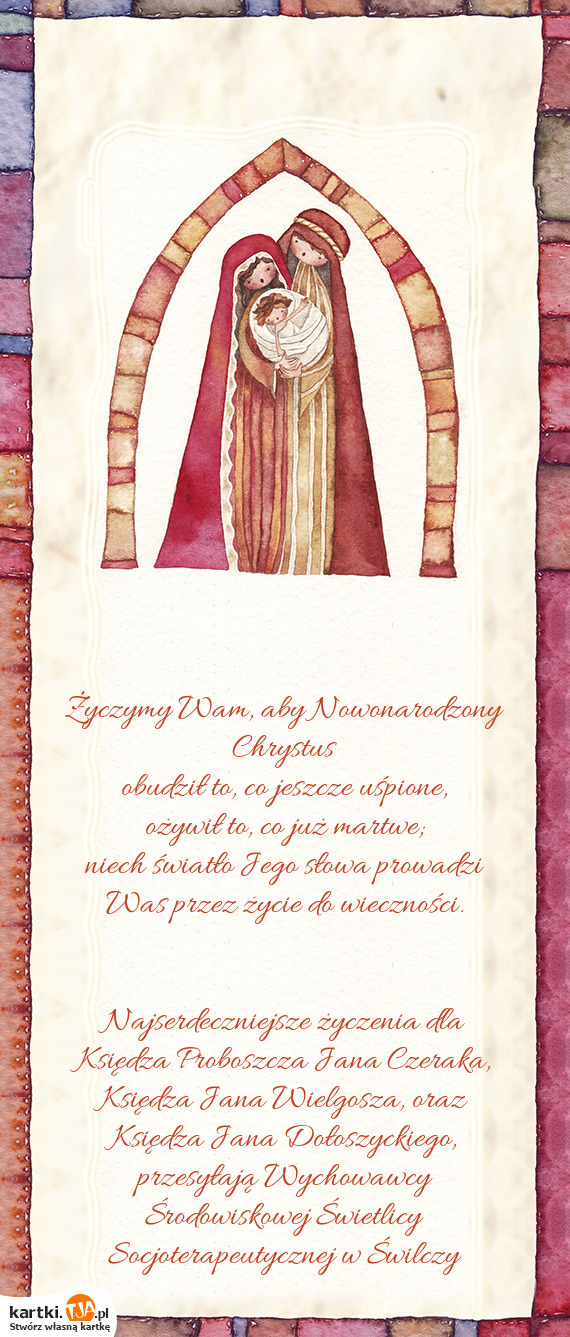 Życzymy Wam, aby Nowonarodzony
Chrystus
obudził to, co jeszcze uśpione,
ożywił to, co już martwe;
niech światło Jego słowa prowadzi
Was przez życie do wieczności.
Najserdeczniejsze życzenia dla
Księdza Proboszcza Jana Czeraka,
Księdza Jana Wielgosza, oraz
Księdza Jana Dołoszyckiego,
przesyłają Wychowawcy
Środowiskowej Świetlicy
Socjoterapeutycznej w Świlczy
kartki.TJA.pl
Stwórz własną kartkę